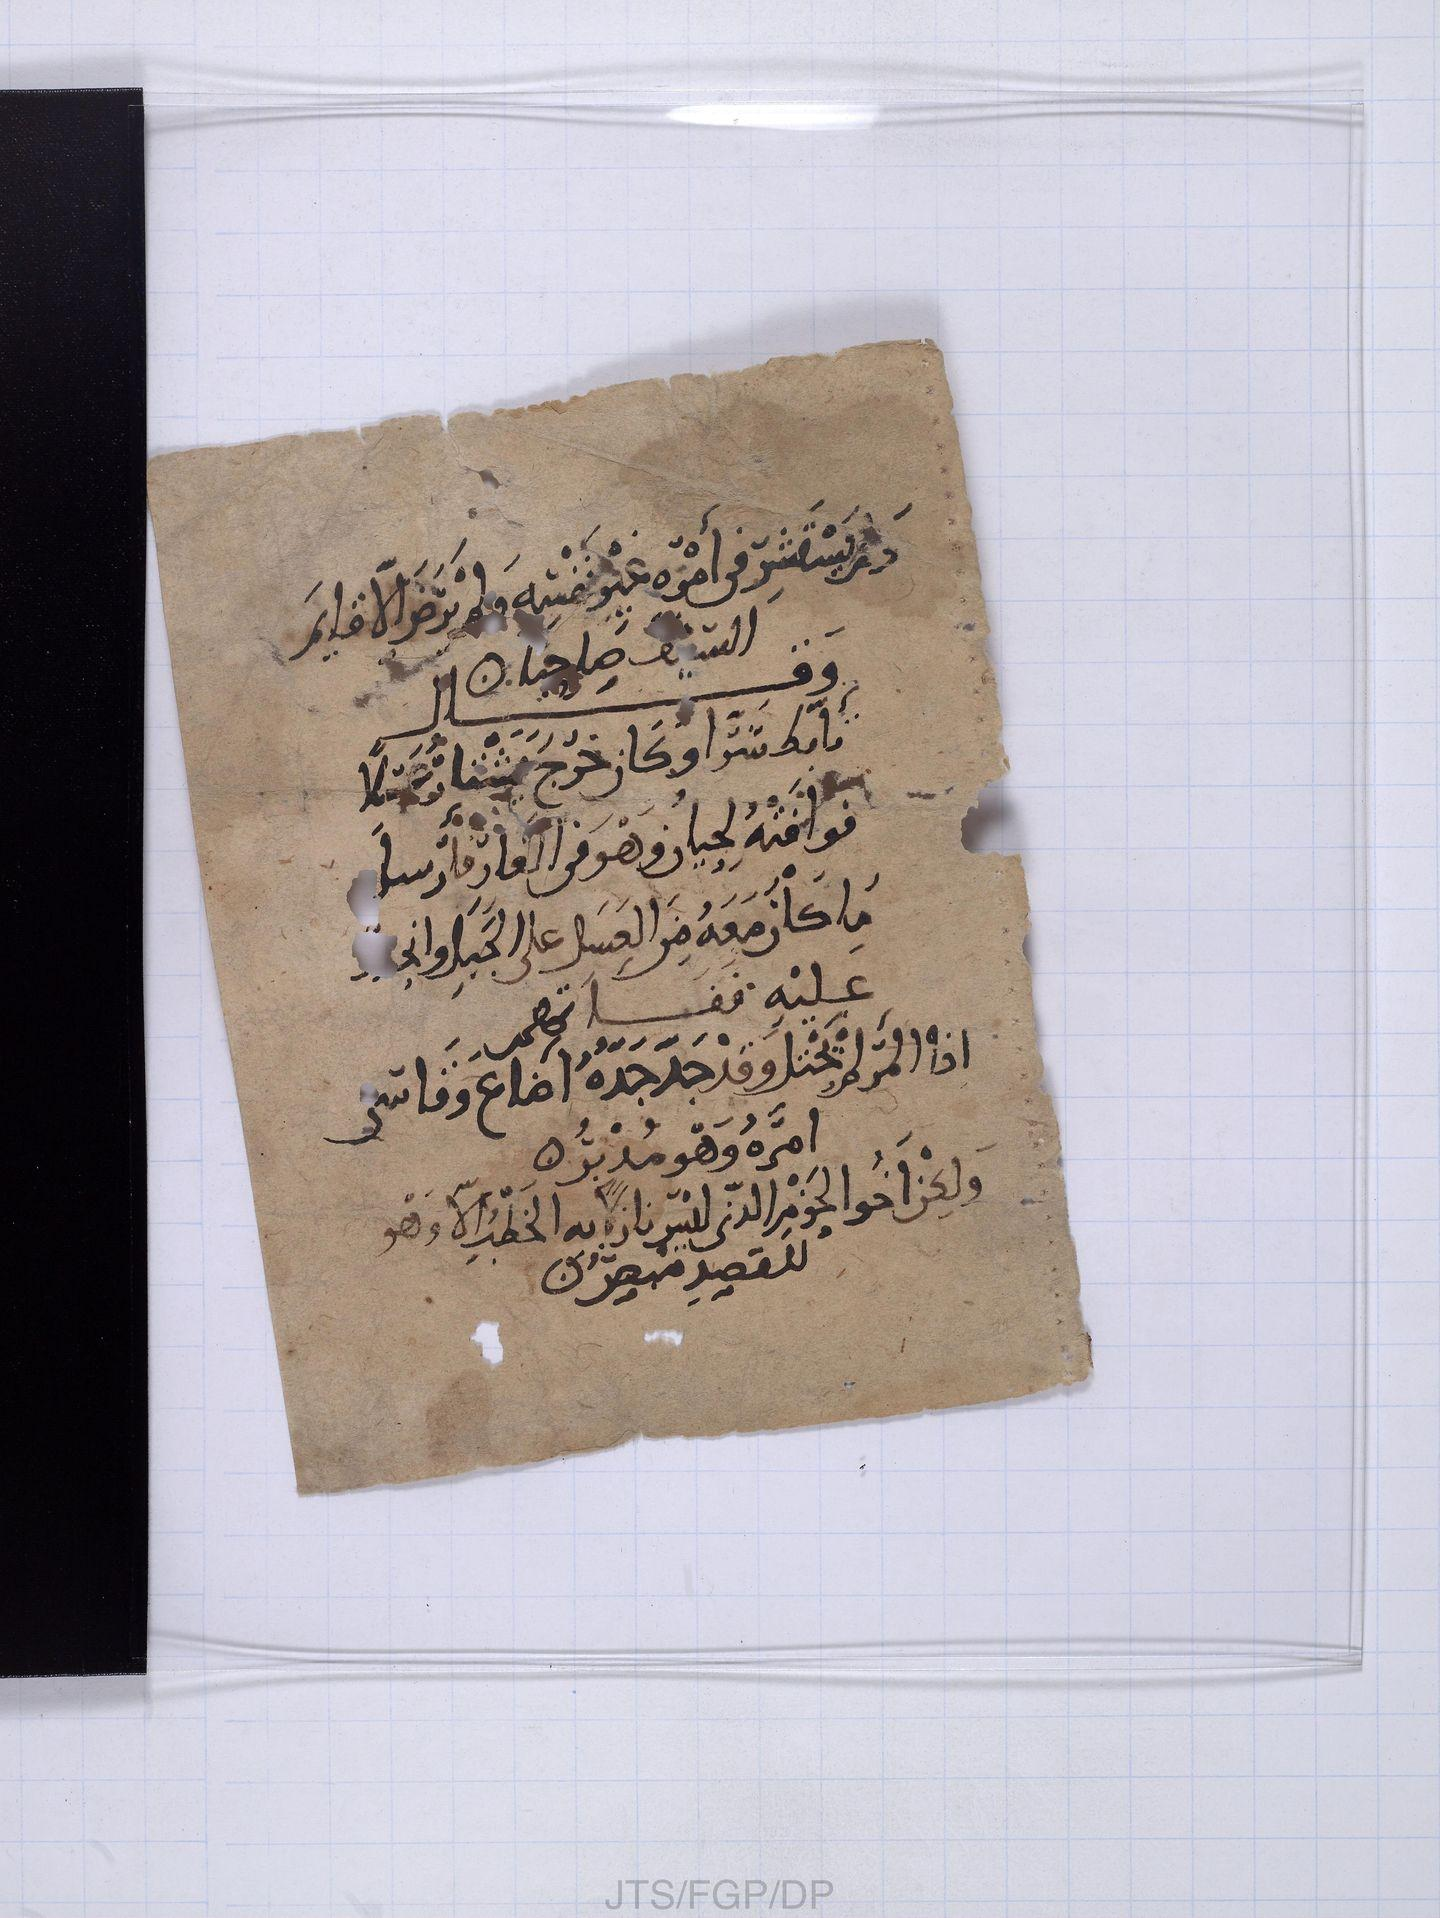 وَلم يَسْتَشِرْ في أَمْرِه غَيْرَ نَفْسِهِ وَلم يَرْضَ الّا قايمَ
السَيْفِ صَاحِبا ه
وَقـــــال
تأبّط شَرّا وَكَان خَرَجَ يَشْتارُ عَسَلًا
فوافَقَتْهُ لِحيانُ وَهْوَ في الغارِ فأرسل
مَا كَانَ مَعَهُ مِنَ العَسَلِ على الجَبَلِ وانحدر
عَليْهِ فقـــال
اذا المَرْ لمْ يَحْتَلْ وَقَدْ جَدَّ جَدّهُ أضَاعَ وَقَاسى
امرَهُ وَهْو مُدْبرُ ه
وَلكِنْ أخُوا الحَزْمِ الذي ليْسَ نازلا به الخَطْبُ الّا وَهْو
للقصدِ مبصِرُ ه
JTS/FGP/DP